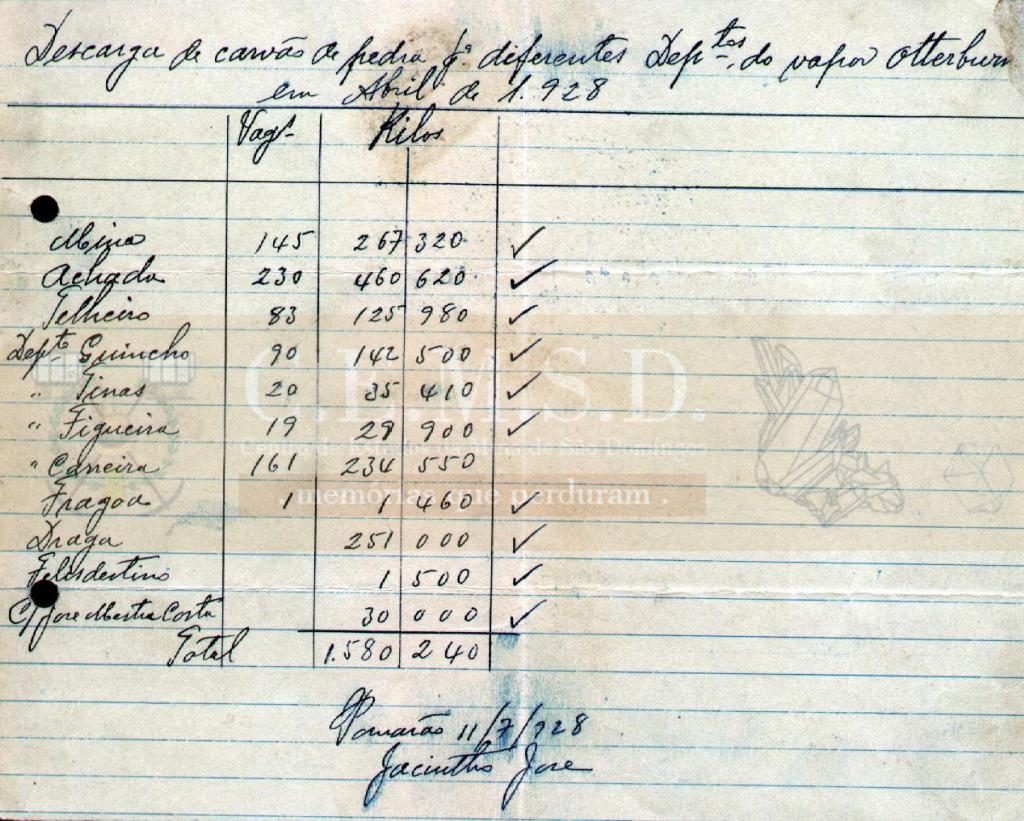 Descarga de carvão de pedra pª diferentes Dep.tos do vapor Otterburn
em Abril de 1.928
Vags. Kilos
Mina 145 267 320 ✓
Achada 230 460 620 ✓
Telheiro 83 125 980 ✓
Depto Guincho 90 142 500 ✓
" Tinas 20 35 410 ✓
" Figueira 19 29 900 ✓
" Caneira 161 234 550
Fragoa 1 1 460 ✓
Draga 251 000 ✓
1 500 ✓
C/ Jose Mestra Costa 30 000 ✓
Total 1.580 240
Pomarão 11/7/928
Jacintho Jose
C.E.M.S.D.
Centro de Estudos da Mina de São Domingos
. memórias que perduram .